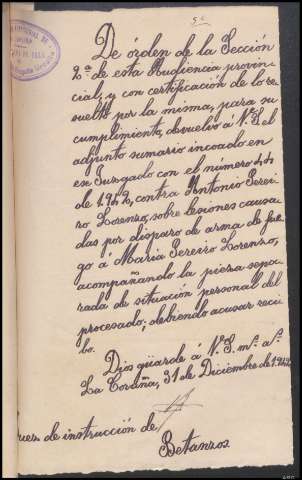 De órden de la Sección
2ª de esta Audiencia provin-
cial, y con certificación de lo re-
suelto por la misma, para su
cumplimiento, devuelvo á V.S. el
adjunto sumario incoado en
ese Juzgado con el número 44
de 1.942, contra Antonio Perei-
ro Lorenzo, sobre lesiones causa-
das por disparo de arma de fue-
go á Maria Pereiro Lorenzo,
acompañando la pieza sepa-
rada de situación personal del
procesado; debiendo acusar reci-
bo.
Dios güarde á V.S. mˢ. aˢ.
La Coruña, 31 de Diciembre de 1.942
de instrucción de
Betanzos